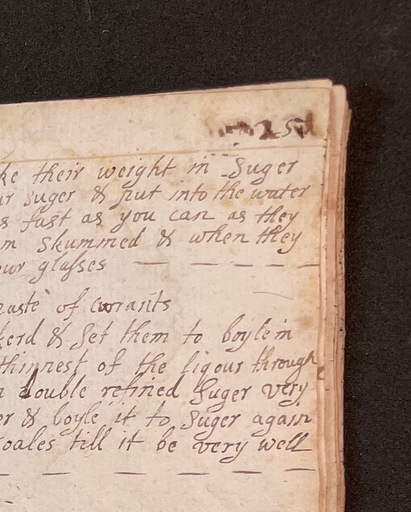 251
ke their weight in Suger
ur Suger & put into the water
s fast as you can as they
m Skummed & when they
our glasses
paste of currants
kerd & Set them to boyle in
thinnest of the liqour through
n double refined Suger very
er & boyle it to Suger again
coales till it be very well